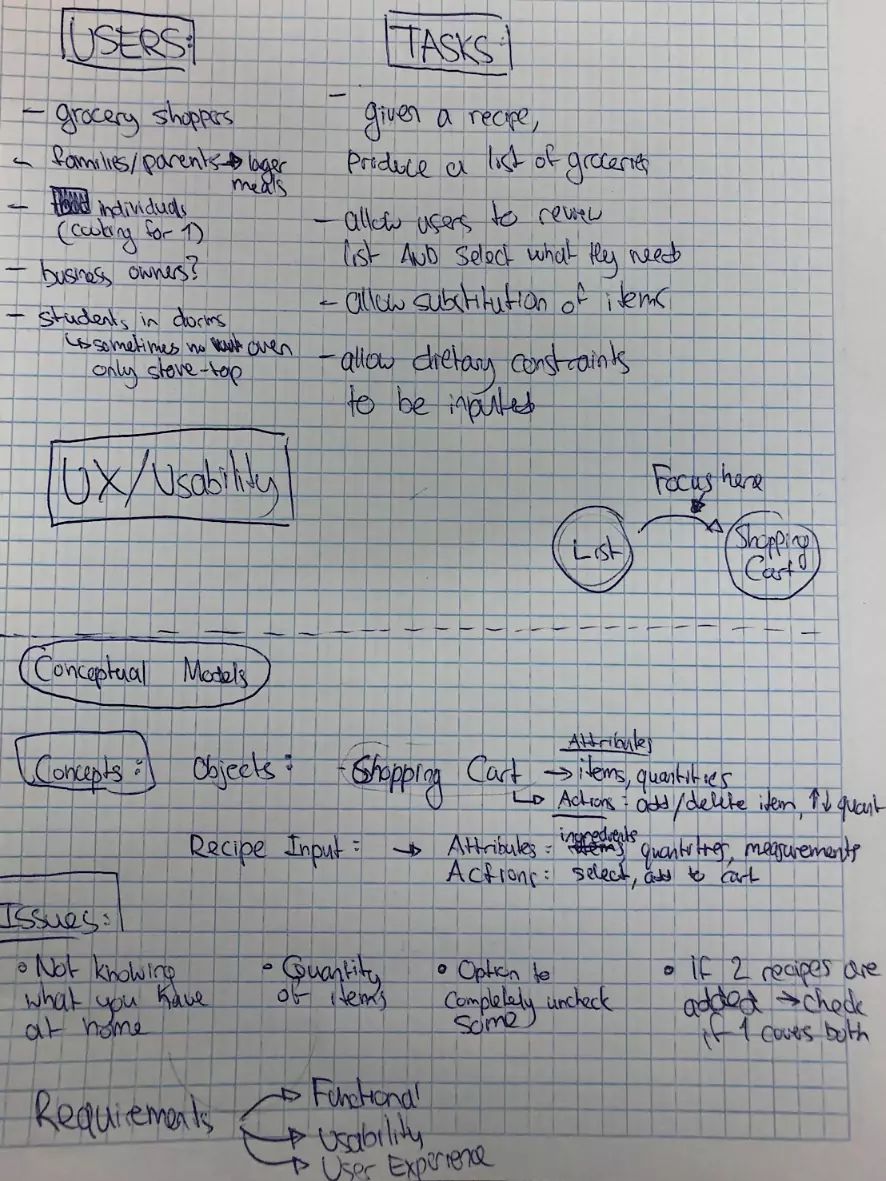 USERS:
- grocery shoppers
- families/parents → lager
meals
- individuals
(cooking for 1)
- business owners?
- students in dorms
↳ sometimes no oven
only stove-top
TASKS:
- given a recipe,
produce a list of groceries
- allow users to review
list AND select what they need
- allow substitution of items
- allow dietary constraints
to be inputed
UX/Usability
Focus here
List → Shopping
Cart
Conceptual Models
Attributes
Concepts: Objects: - Shopping Cart → items, quantities
↳ Actions: add/delete item, ↑↓ quant
ingredients
Recipe Input: → Attributes = quantities, measurements
Actions: select, add to cart
Issues:
• Not knowing
what you have
at home
• Quantity
of items
• Option to
completely uncheck
some
• if 2 recipes are
added → check
if 1 covers both
Requirements → Functional
→ Usability
→ User Experience